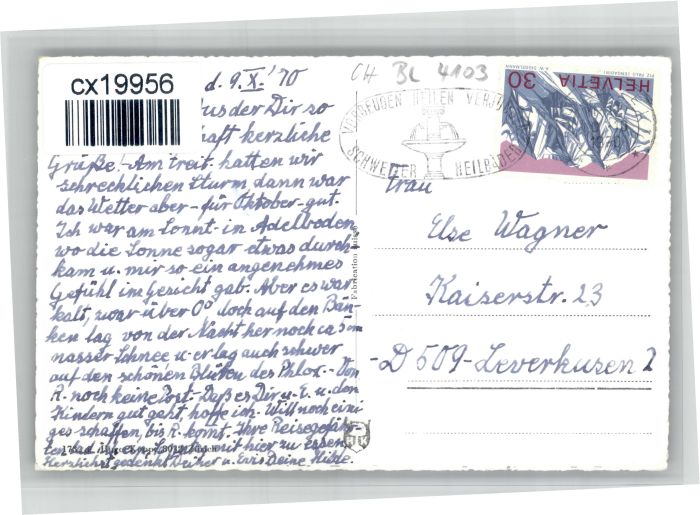 cx19956
CH BL 4103
d. 9. X. '70
aus der Dir so
haft kerzliche
Grüße! Am Freit. hatten wir
schrecklichen Sturm, dann war
das Wetter aber - für Oktober - gut.
Ich war am Sonnt. in Adelboden
wo die Sonne sogar etwas durch-
kam u. mir so ein angenehmes
Gefühl im Gesicht gab. Aber es war
kalt, zwar über 0° doch auf den Bän-
ken lag von der Nacht her noch ca 5 cm
nasser Schnee u. er lag auch schwer
auf den schönen Blüten des Phlox. - Von
R. noch keine Post. - Daß es Dir u. E. u. den
Kindern gut geht, hoffe ich. Will noch eini-
ges schaffen, bis R. kommt. Ihre Reisegefähr-
mit hier zu Essen.
Herzlichst gedenkt Deiner u. Evis Deine Hilde.
Fabrication Suisse
HELVETIA 30
VORBEUGEN HEILEN VERJÜ
SCHWEIZER HEILBÄDER
Frau
Else Wagner
Kaiserstr. 23
-D 509-Leverkusen 2